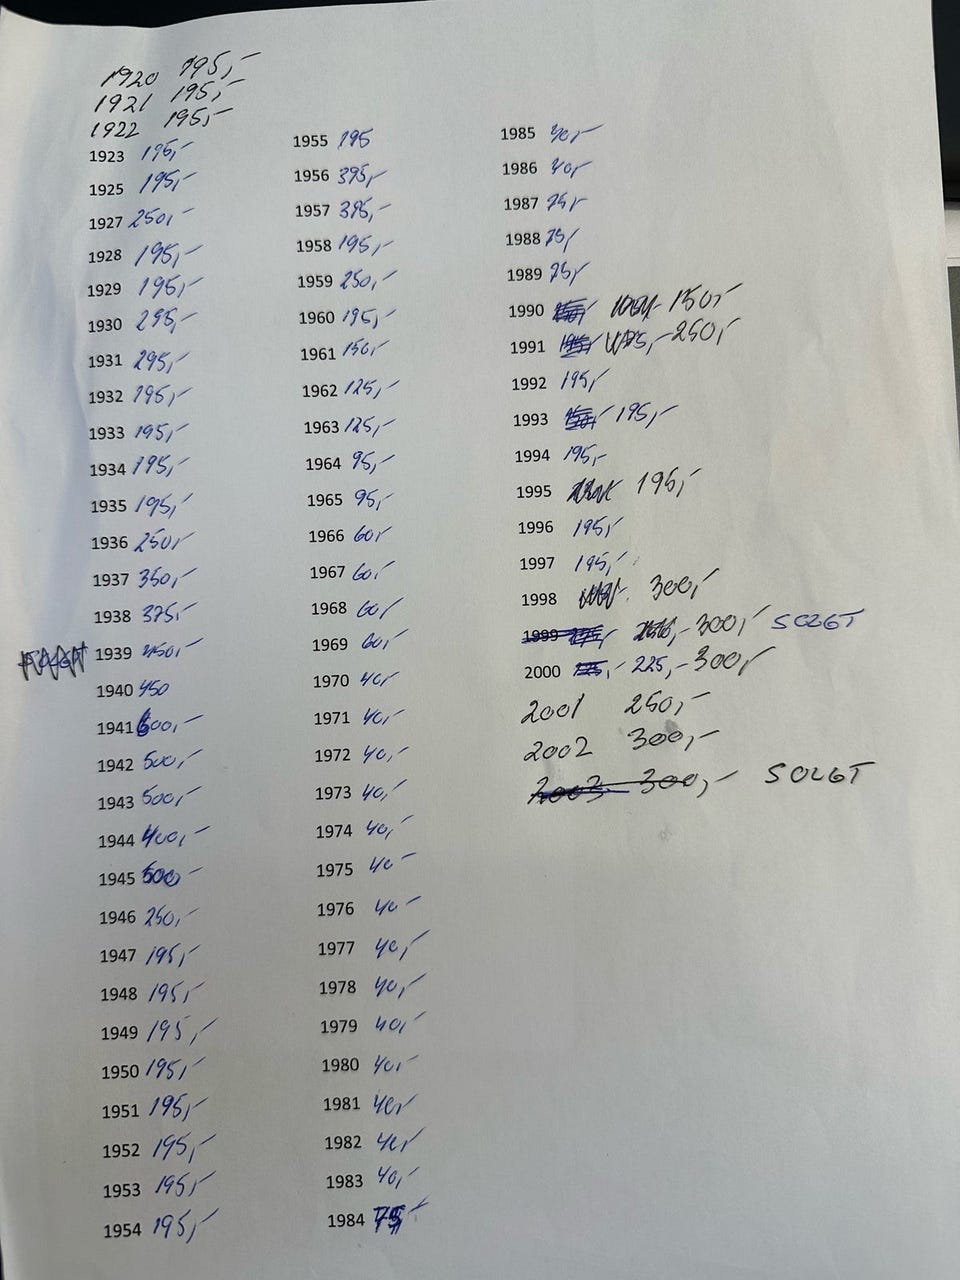 1920 195,-
1921 195,-
1922 195,-
1923 195,-
1925 195,-
1927 250,-
1928 195,-
1929 195,-
1930 295,-
1931 295,-
1932 295,-
1933 195,-
1934 195,-
1935 195,-
1936 250,-
1937 350,-
1938 375,-
1939 450,-
1940 450
1941 600,-
1942 500,-
1943 500,-
1944 400,-
1945 500,-
1946 250,-
1947 195,-
1948 195,-
1949 195,-
1950 195,-
1951 195,-
1952 195,-
1953 195,-
1954 195,-
1955 195
1956 395,-
1957 395,-
1958 195,-
1959 250,-
1960 195,-
1961 150,-
1962 125,-
1963 125,-
1964 95,-
1965 95,-
1966 60,-
1967 60,-
1968 60,-
1969 60,-
1970 40,-
1971 40,-
1972 40,-
1973 40,-
1974 40,-
1975 40-
1976 40-
1977 40,-
1978 40,-
1979 40,-
1980 40,-
1981 40,-
1982 40,-
1983 40,-
1984 75,-
1985 40,-
1986 40,-
1987 75,-
1988 75,-
1989 75,-
1990 150,-
1991 250,-
1992 195,-
1993 195,-
1994 195,-
1995 195,-
1996 195,-
1997 195,-
1998 300,-
1999 300,- SOLGT
2000 225,- 300,-
2001 250,-
2002 300,-
2003 300,- SOLGT